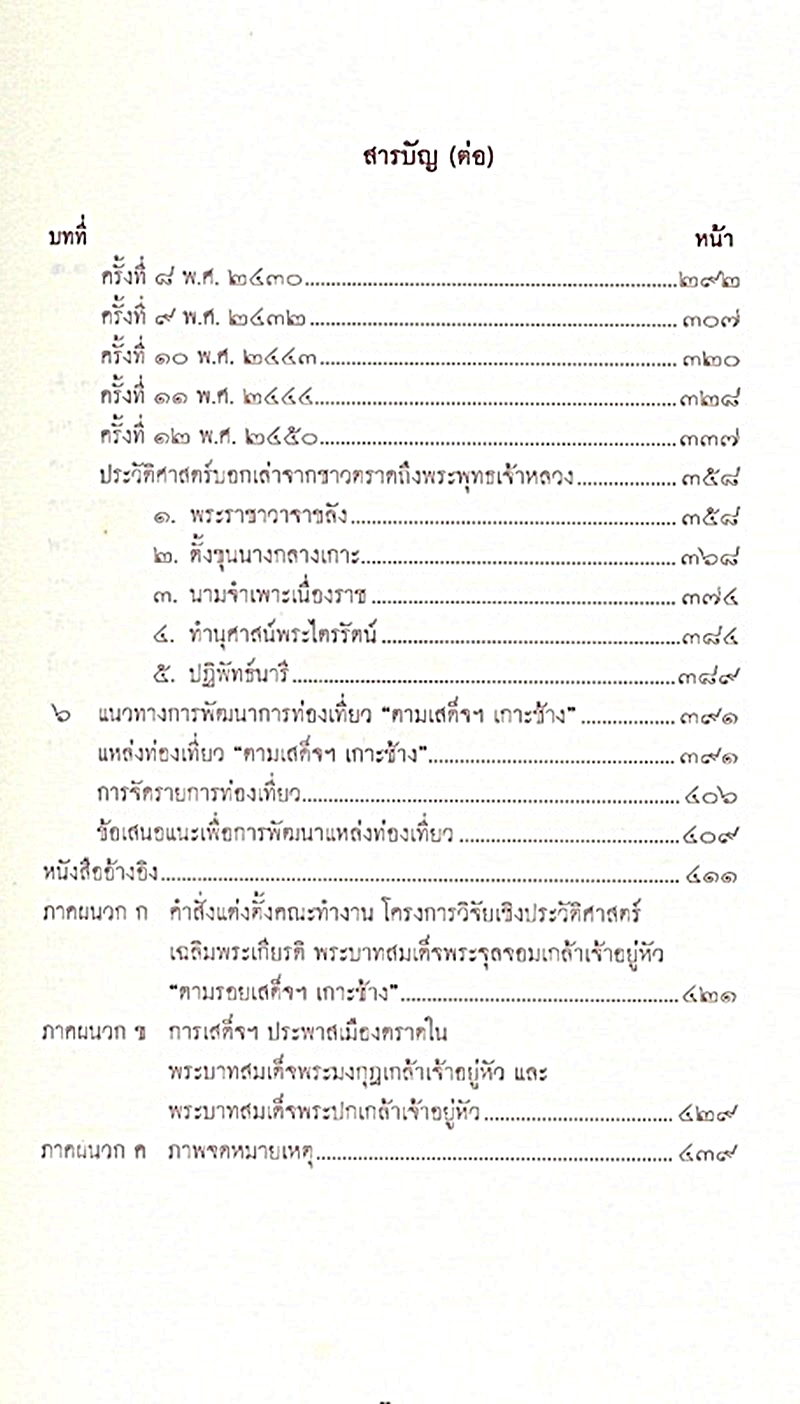 สารบัญ (ต่อ)
บทที่ หน้า
ครั้งที่ ๘ พ.ศ. ๒๔๓๐ ๒๙๒
ครั้งที่ ๙ พ.ศ. ๒๔๓๒ ๓๐๗
ครั้งที่ ๑๐ พ.ศ. ๒๔๔๓ ๓๒๐
ครั้งที่ ๑๑ พ.ศ. ๒๔๔๔ ๓๒๘
ครั้งที่ ๑๒ พ.ศ. ๒๔๕๐ ๓๓๗
ประวัติศาสตร์บอกเล่าจากชาวตราดถึงพระพุทธเจ้าหลวง ๓๕๘
๑. พระราชาวาจาขลัง ๓๕๘
๒. ตั้งขุนนางกลางเกาะ ๓๖๘
๓. นามจำเพาะเนื่องราช ๓๗๔
๔. ทำนุศาสน์พระไตรรัตน์ ๓๘๔
๕. ปฏิพัทธ์นารี ๓๘๙
๖ แนวทางการพัฒนาการท่องเที่ยว “ตามเสด็จฯ เกาะช้าง” ๓๙๑
แหล่งท่องเที่ยว “ตามเสด็จฯ เกาะช้าง” ๓๙๑
การจัดรายการท่องเที่ยว ๔๐๖
ข้อเสนอแนะเพื่อการพัฒนาแหล่งท่องเที่ยว ๔๐๙
หนังสืออ้างอิง ๔๑๑
ภาคผนวก ก คำสั่งแต่งตั้งคณะทำงาน โครงการวิจัยเชิงประวัติศาสตร์
เฉลิมพระเกียรติ พระบาทสมเด็จพระจุลจอมเกล้าเจ้าอยู่หัว
“ตามรอยเสด็จฯ เกาะช้าง” ๔๒๑
ภาคผนวก ข การเสด็จฯ ประพาสเมืองตราดใน
พระบาทสมเด็จพระมงกุฎเกล้าเจ้าอยู่หัว และ
พระบาทสมเด็จพระปกเกล้าเจ้าอยู่หัว ๔๒๙
ภาคผนวก ค ภาพจดหมายเหตุ ๔๓๙